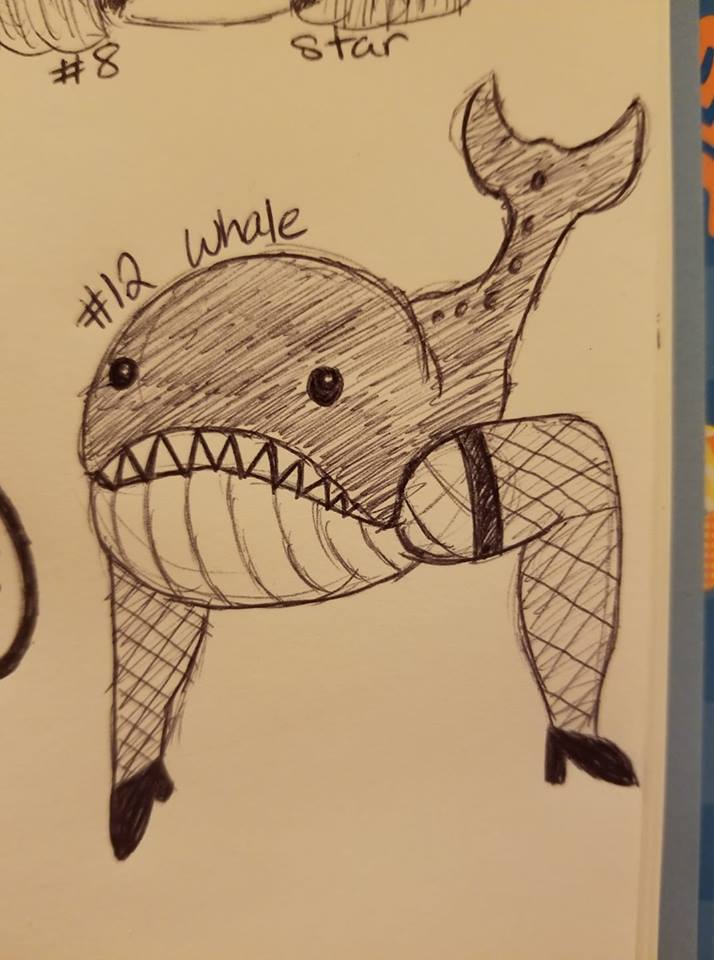 #8
star
#12 whale